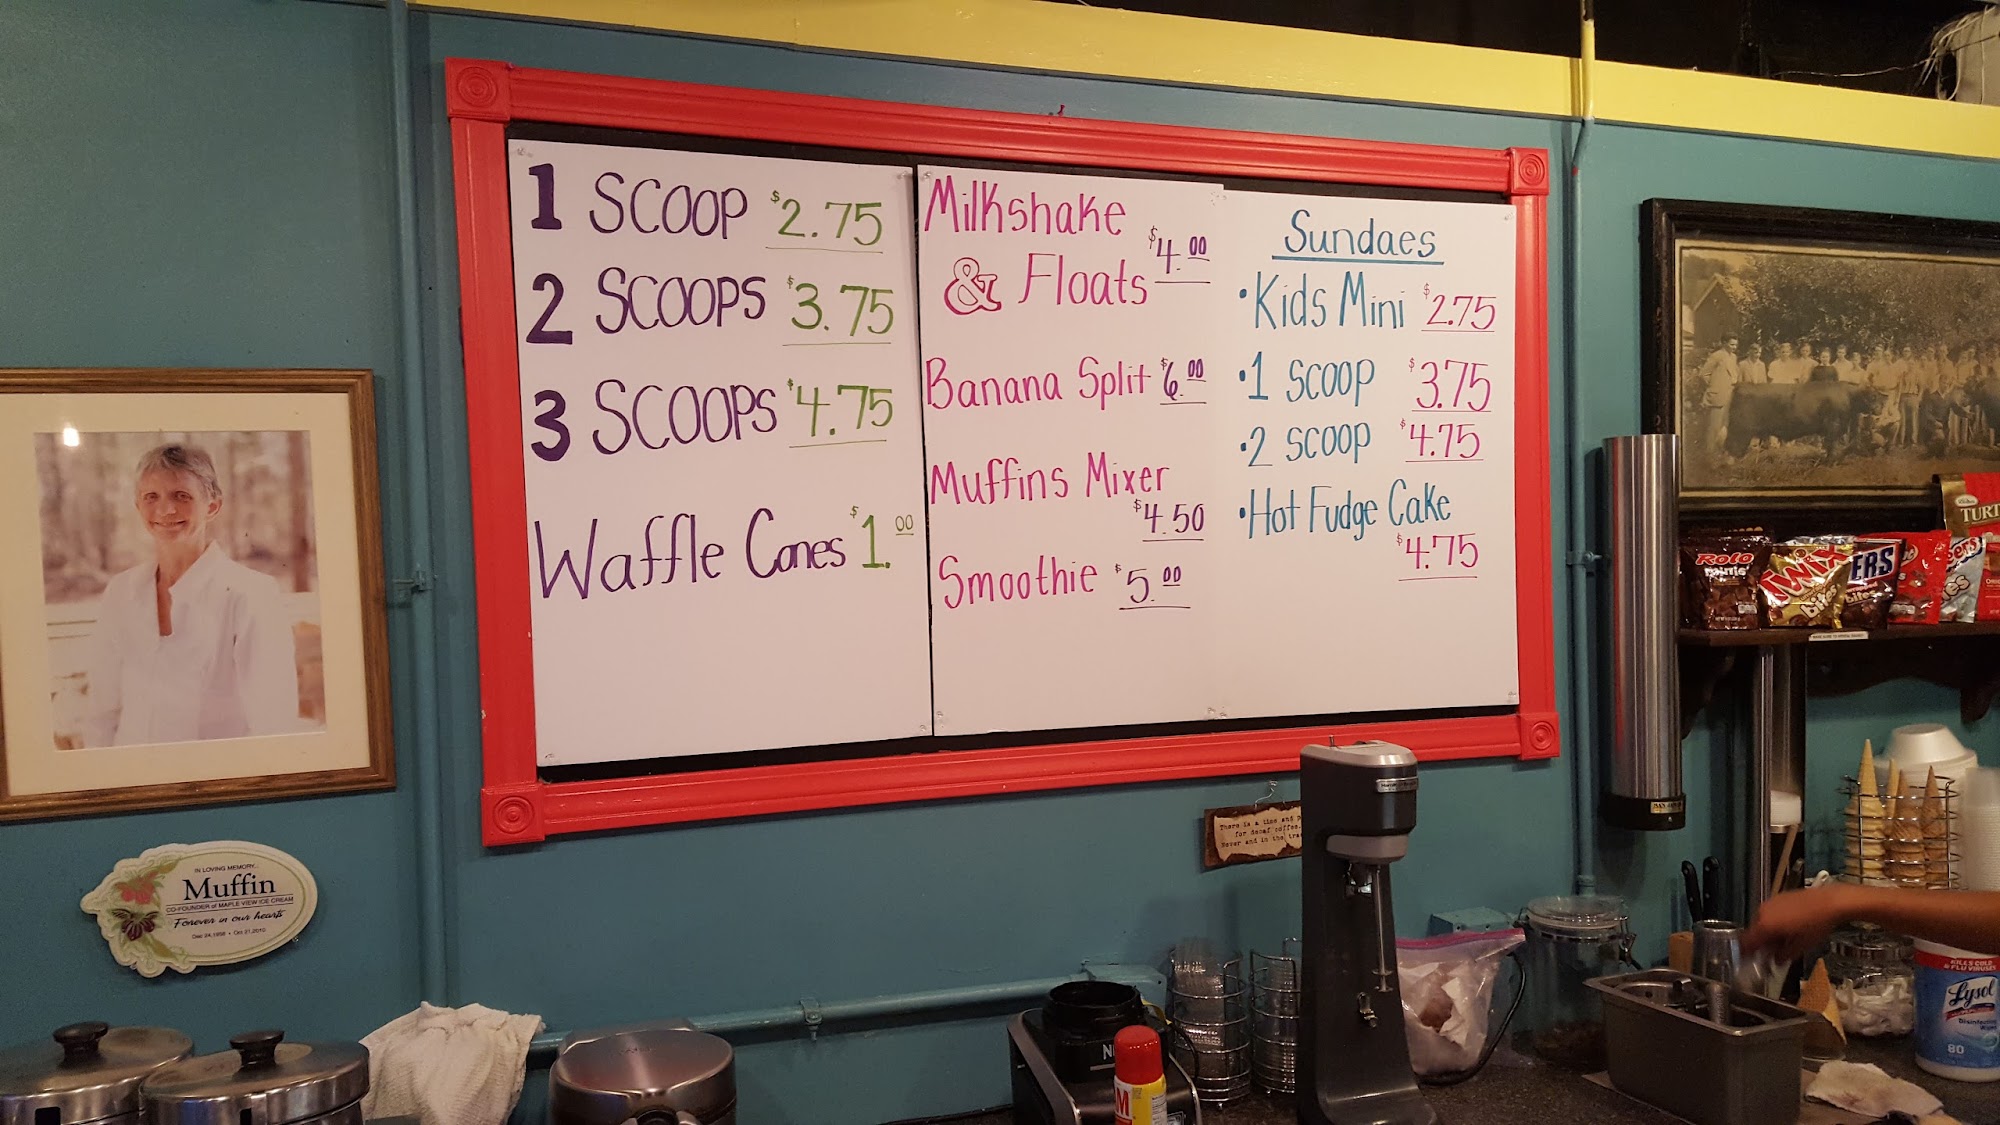 1 SCOOP $2.75
2 SCOOPS $3.75
3 SCOOPS $4.75
Waffle Cones $1.00
Milkshake
& Floats $4.00
Banana Split $6.00
Muffins Mixer
$4.50
Smoothie $5.00
Sundaes
•Kids Mini $2.75
•1 scoop $3.75
•2 scoop $4.75
•Hot Fudge Cake
$4.75
IN LOVING MEMORY...
Muffin
CO-FOUNDER of MAPLE VIEW ICE CREAM
Forever in our hearts
There is a time and
for decaf coffee.
Never and in the
TURT
ROLO
minis
TWIX
bites
ERS
bites
KILLS COLD
& FLU VIRUSES
Lysol
Disinfecting
Wipes
80